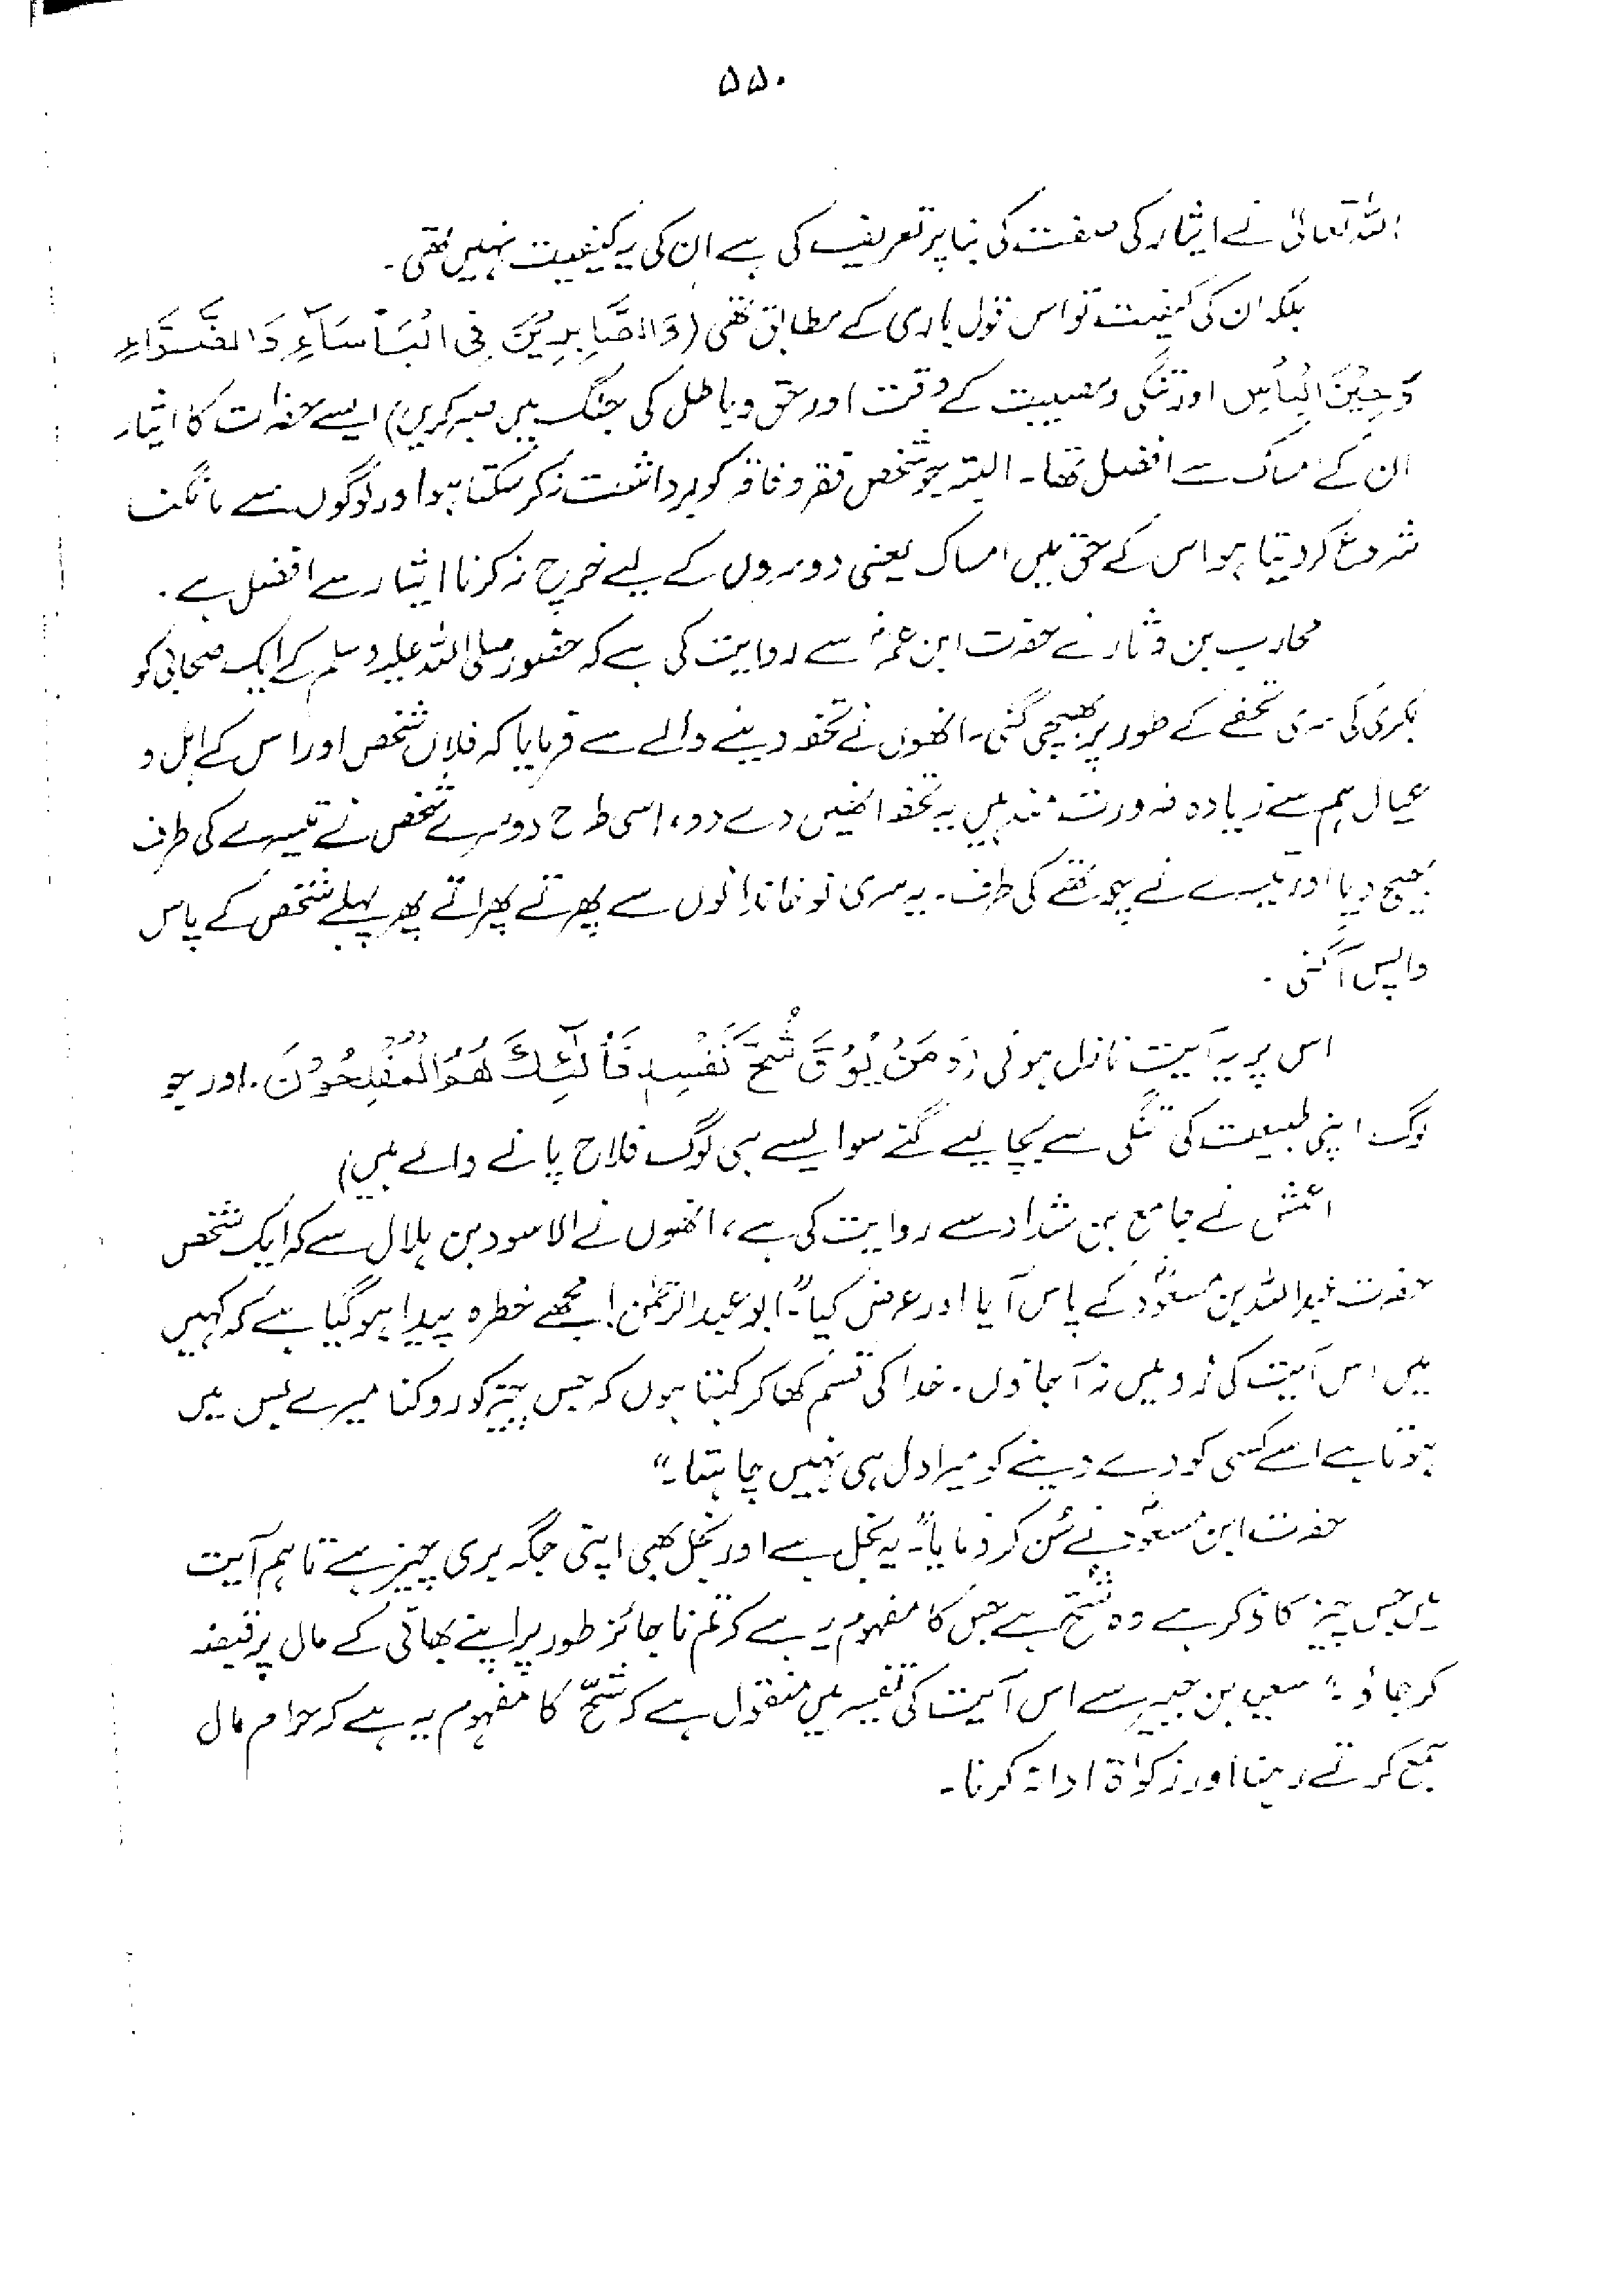 ۵۵۰
اللہ تعالیٰ نے ایثار کی صفت کی بنا پر تعریف کی ہے ان کی یہ کیفیت نہیں تھی۔
بلکہ ان کی کیفیت تو اس قول باری کے مطابق تھی (وَالصَّابِرِيْنَ فِي الْبَأْسَآءِ وَالضَّرَّاءِ
وَحِيْنَ الْبَأْسِ اور تنگی و مصیبت کے وقت اور حق و باطل کی جنگ میں صبر کریں) ایسے حضرات کا ایثار
ان کے امساک سے افضل تھا۔ البتہ جو شخص فقر و فاقہ کو برداشت نہ کر سکتا ہو اور لوگوں سے مانگنا
شروع کر دیتا ہو اس کے حق میں امساک یعنی دوسروں کے لیے خرچ نہ کرنا ایثار سے افضل ہے۔
محارب بن دثار نے حضرت ابن عمرؓ سے روایت کی ہے کہ حضور صلی اللہ علیہ وسلم کے ایک صحابی کو
بکری کی سری تحفے کے طور پر بھیجی گئی۔ انھوں نے تحفہ دینے والے سے فرمایا کہ فلاں شخص اور اس کے اہل و
عیال ہم سے زیادہ ضرورت مند ہیں یہ تحفہ انھیں دے دو، اسی طرح دوسرے شخص نے تیسرے کی طرف
بھیج دیا اور تیسرے نے چوتھے کی طرف۔ یہ سری نو خاندانوں سے پھرتے پھراتے پھر پہلے شخص کے پاس
واپس آ گئی۔
اس پر یہ آیت نازل ہوئی (وَمَنْ يُّوْقَ شُحَّ نَفْسِهٖ فَأُولٰٓئِكَ هُمُ الْمُفْلِحُوْنَ۔ اور جو
لوگ اپنی طبیعت کی تنگی سے بچا لیے گئے سو ایسے ہی لوگ فلاح پانے والے ہیں)
اعمش نے جامع بن شداد سے روایت کی ہے، انھوں نے الاسود بن ہلال سے کہ ایک شخص
حضرت عبداللہ بن مسعودؓ کے پاس آیا اور عرض کیا "۔ ابو عبدالرحمٰن! مجھے خطرہ پیدا ہو گیا ہے کہ کہیں
میں اس آیت کی زد میں نہ آ جاؤں۔ خدا کی قسم کھا کر کہتا ہوں کہ جس چیز کو روکنا میرے بس میں
ہوتا ہے اسے کسی کو دے دینے کو میرا دل ہی نہیں چاہتا۔"
حضرت ابن مسعودؓ نے سُن کر فرمایا "۔ یہ بخل ہے اور بخل بھی اپنی جگہ بری چیز ہے تاہم آیت
میں جس چیز کا ذکر ہے وہ شُحّ ہے جس کا مفہوم یہ ہے کہ تم ناجائز طور پر اپنے بھائی کے مال پر قبضہ
کر جاؤ۔" سعید بن جبیر سے اس آیت کی تفسیر میں منقول ہے کہ شُحّ کا مفہوم یہ ہے کہ حرام مال
جمع کرتے رہنا اور زکوٰۃ ادا نہ کرنا۔